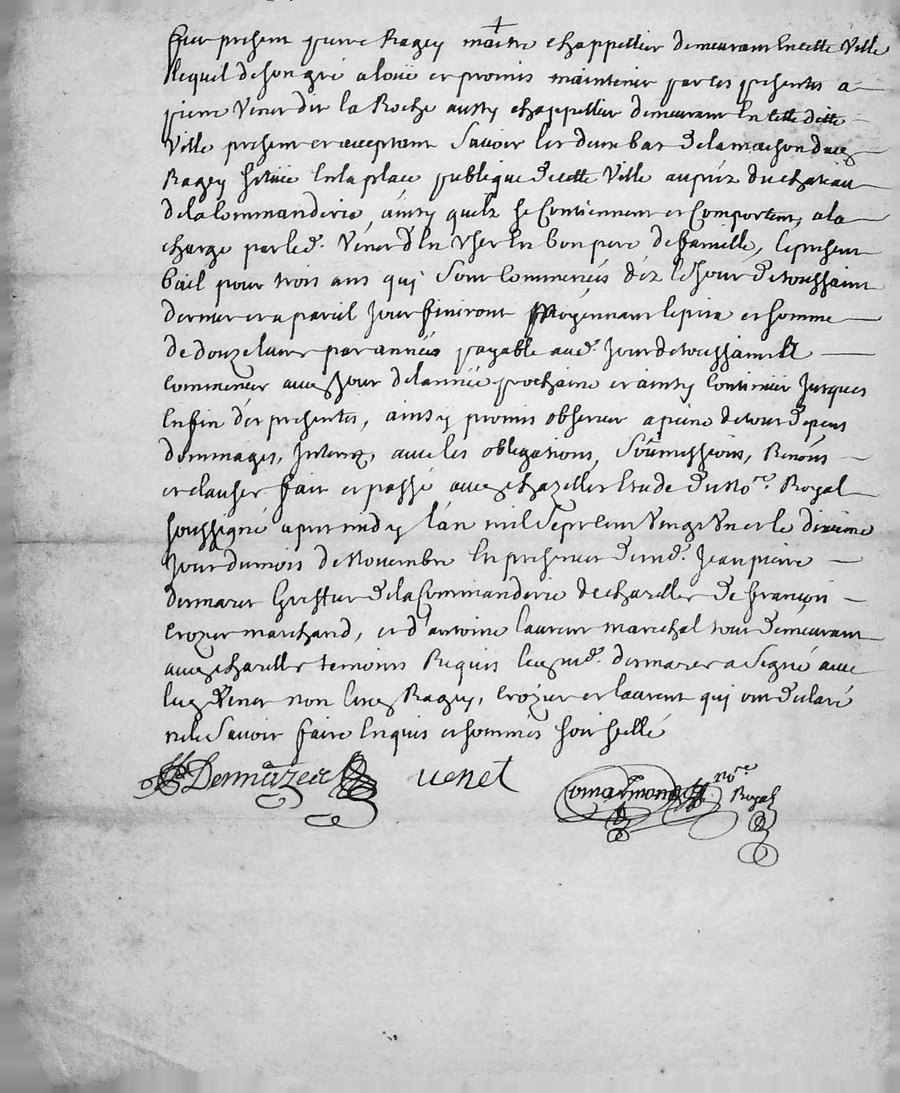 fut present pierre Ragey maitre chappellier demeurant en cette ville
lequel de son gré a loüé et promis maintenir par ces presentes a
pierre Venet dit la Roche aussy chappellier demeurant en cette ditte
ville present et acceptant Savoir les deux bas de la maison dud.
Ragey Sittüée en la place publique de cette ville auprez du chateau
de la Commanderie, ainsy quelz se Contiennent et Comportent, a la
charge par led. Venet d'en User en bon pere de famille, le present
bail pour trois ans qui Sont Commencés déz le Jour de toussaint
dernier et a pareil Jour finiront Moÿennant le prix et somme
de douze livres par année payable aud. Jour de toussaint Et
commencer aud. Jour de l'année prochaine et ainsy Continüer Jusques
En fin des presentes, ainsy promis observer a peine de tous depens
dommages, Interetz, avec les obligations, Soûmissions, Renons
et clauses fait et passé aud. chazelles Etude du No.re Royal
soussigné apres midy l'an mil Sept cent vingt Un et le dixieme
Jour du mois de Novembre En presence de m.e Jean pierre
dermazet Greffier de la Commanderie de chazelles de françois
Crozier marchand, et d'antoine laurent marechal tous demeurant
aud. chazelles temoins Requis led. m.e dermazet a Signé avec
led. Venet non led. Ragey, Crozier et laurent qui ont declaré
ne le Savoir faire Enquis et sommés
Dermazet venet Comarmond no.re
Royal